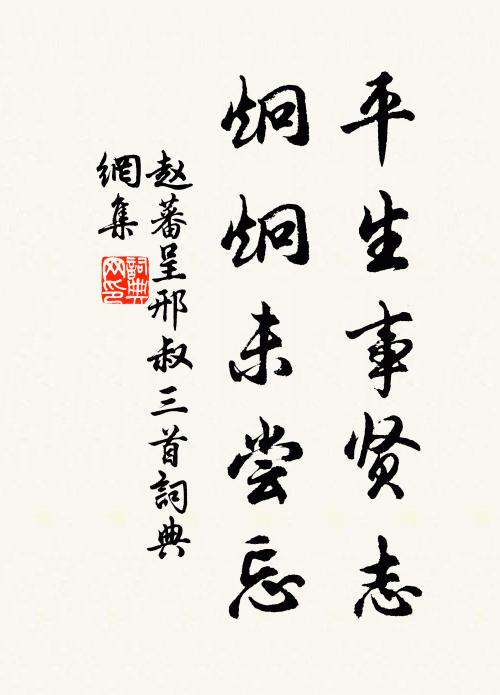 平生事贤志
炯炯未尝忘
赵蕃呈邢叔三首詞典
網集
詞典網印